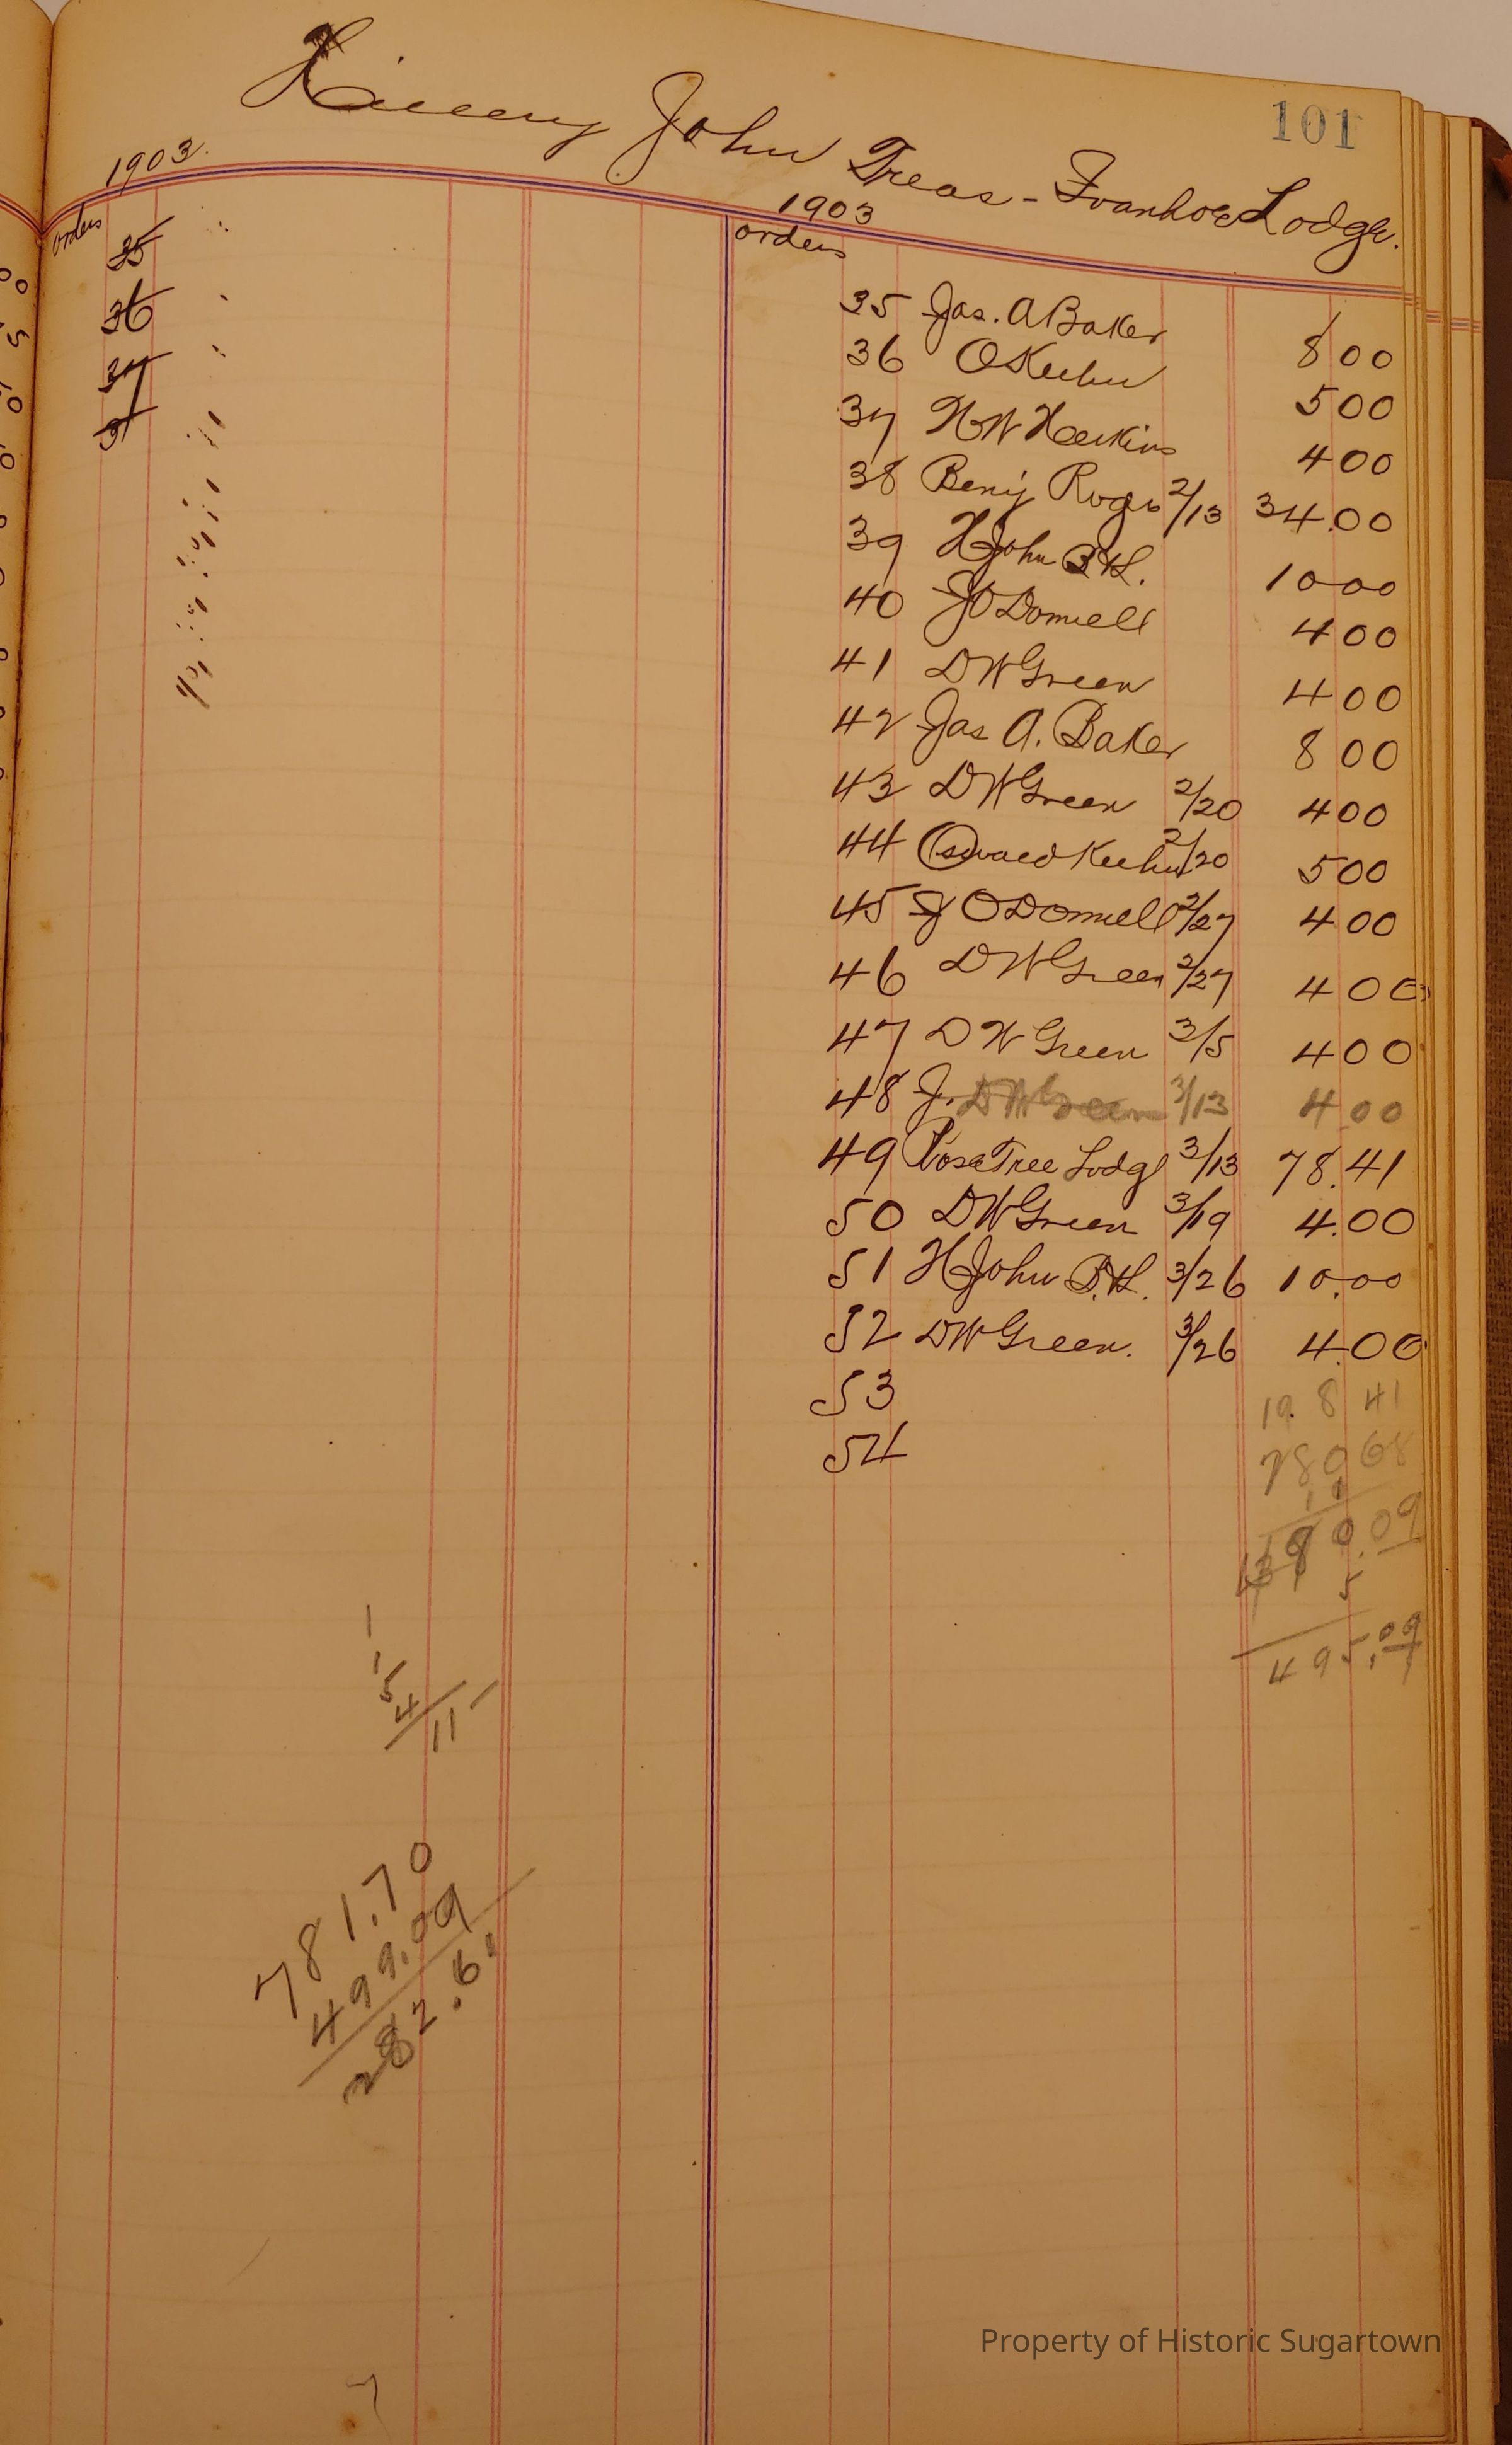 101
John Treas - Ivanhoe Lodge.
1903.
orders
35
36
37
37
1903
orders
35 Jas. A Baker 8 00
36 O Keehn 5 00
37 4 00
38 Benj 2/13 34.00
39 H John P.H. 10 00
40 J O Donnell 4 00
41 D W Green 4 00
42 Jas A. Baker 8 00
43 D W Green 2/20 4 00
44 Oswald Keehn 2/20 5 00
45 J O Donnell 2/27 4 00
46 D W Green 2/27 4 00
47 D W Green 3/5 4 00
48 J. D W Green 3/13 4 00
49 Rose Tree Lodg 3/13 78.41
50 D W Green 3/19 4.00
51 H John P.H. 3/26 10.00
52 D W Green. 3/26 4.00
53
54
19 8 41
280 68
11
.09
5
495.09
1
1
5
4
11
781.70
499.09
282.61
7
Property of Historic Sugartown